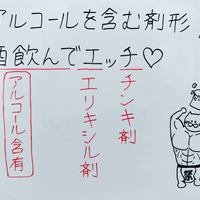 アルコールを含む剤形
酒飲んでエッチ♡
チンキ剤
エリキシル剤
アルコール含有